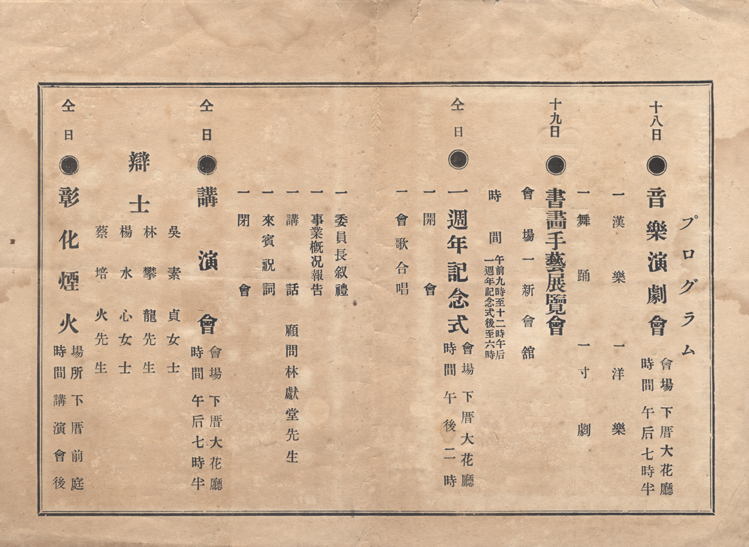 プログラム
十八日 ● 音樂演劇會 會場 下厝大花廳
時間 午后七時半
一漢樂 一洋樂
一舞踊 一寸劇
十九日 ● 書畫手藝展覽會
會場 一新會館
時間 午前九時至十二時午后
一週年記念式後至六時
仝日 ● 一週年記念式 會場 下厝大花廳
時間 午後二時
一開會
一會歌合唱
一委員長叙禮
一事業概况報告
一講話 顧問林獻堂先生
一來賓祝詞
一閉會
仝日 ● 講演會 會場 下厝大花廳
時間 午后七時半
吳素貞女士
林攀龍先生
辯士
楊水心女士
蔡培火先生
仝日 ● 彰化煙火 場所 下厝前庭
時間 講演會後